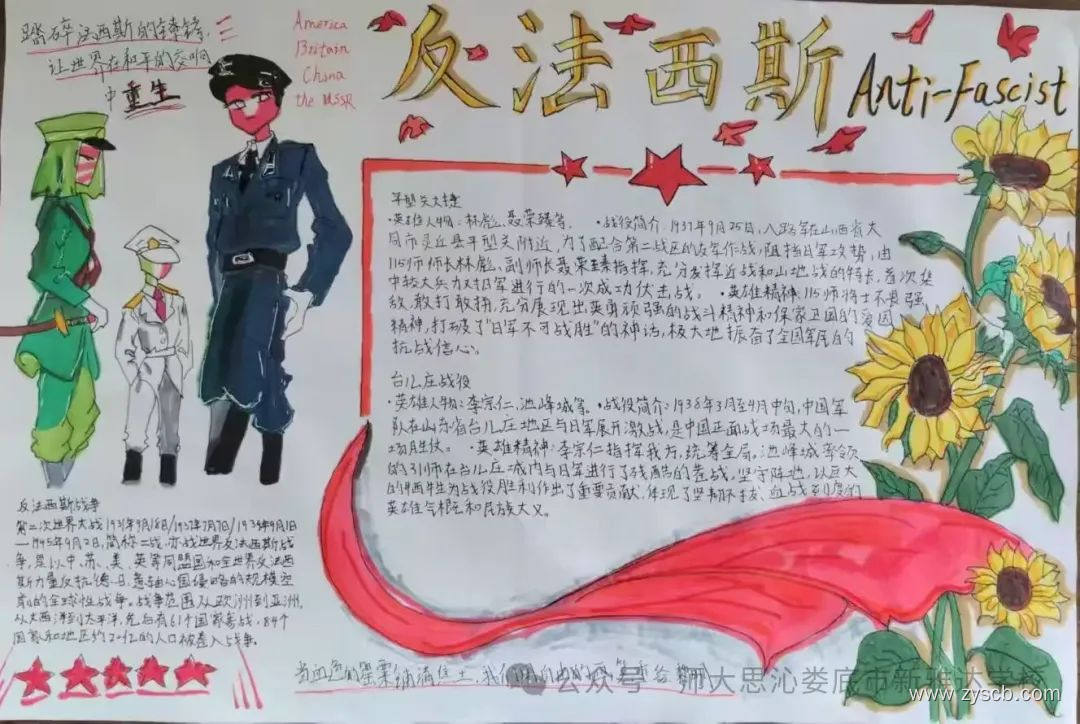 踏碎法西斯的铁蹄,
让世界在和平的交响
中重生
America
Britain
China
the USSR
反法西斯 Anti-Fascist
平型关大捷
·英雄人物:林彪、聂荣臻等。 ·战役简介:1937年9月25日,八路军在山西省大
同市灵丘县平型关附近,为了配合第二战区的友军作战,阻挡日军攻势,由
115师师长林彪、副师长聂荣臻指挥,充分发挥近战和山地战的特长,首次集
中较大兵力对日军进行的一次成功伏击战。 ·英雄精神:115师将士不畏强
敌,敢打敢拼,充分展现出英勇顽强的战斗精神和保家卫国的爱国
精神,打破了"日军不可战胜"的神话,极大地振奋了全国军民的
抗战信心。
台儿庄战役
·英雄人物:李宗仁、池峰城等。·战役简介:1938年3月至4月中旬,中国军
队在山东省台儿庄地区与日军展开激战,是中国正面战场最大的一
场胜仗。 ·英雄精神:李宗仁指挥有方,统筹全局,池峰城率领
的31师在台儿庄城内与日军进行了残酷的巷战,坚守阵地,以巨大
的牺牲为战役胜利作出了重要贡献,体现了坚韧不拔、血战到底的
英雄气概和民族大义。
反法西斯战争
第二次世界大战1931年9月18日/1937年7月7日/1939年9月1日
—1945年9月2日,简称二战,亦战世界反法西斯战
争,是以中、苏、美、英等同盟国和全世界反法西
斯力量反抗德、日、意轴心国侵略的规模空
前的全球性战争。战争范围从欧洲到亚洲,
从大西洋到太平洋,先后有61个国家参战,84个
国家和地区约20亿的人口被卷入战争。
当血色的罂粟铺满住土,我们
公众号 师大思沁娄底市新雅达学校
www.zyscb.com